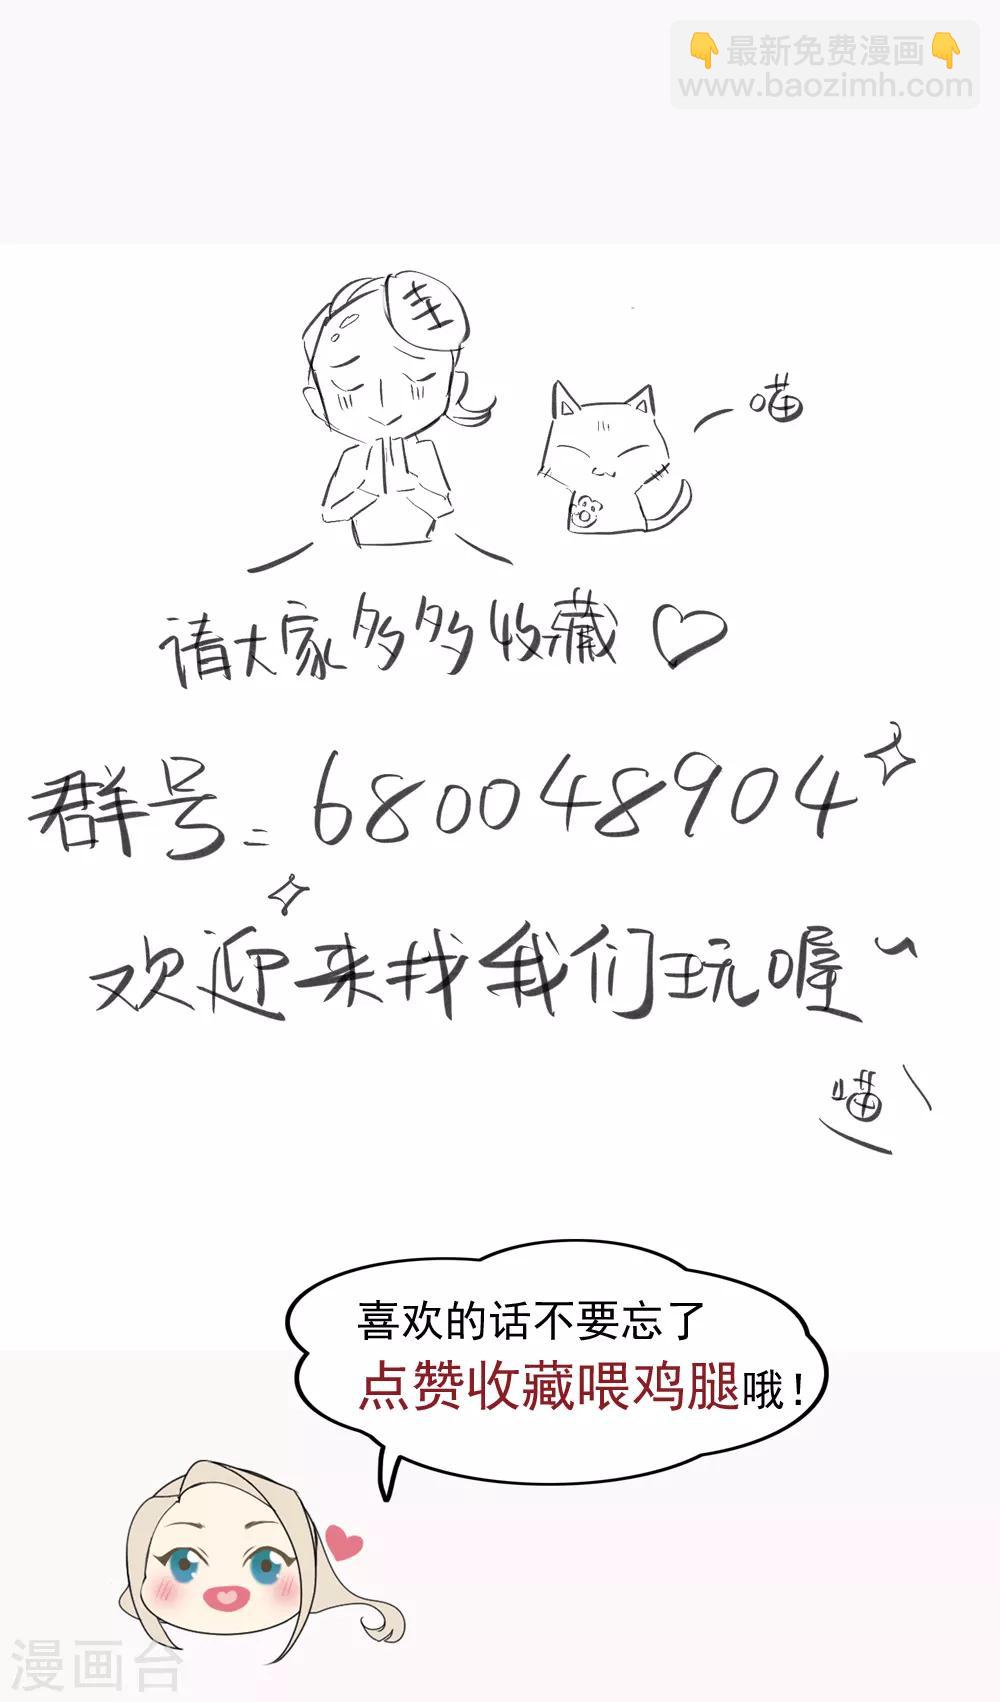 👇最新免费漫画👇
www.baozimh.com
圭
喵
请大家多多收藏♡
群号：680048904
欢迎来找我们玩喔~
喵
喜欢的话不要忘了
点赞收藏喂鸡腿哦！
漫画台